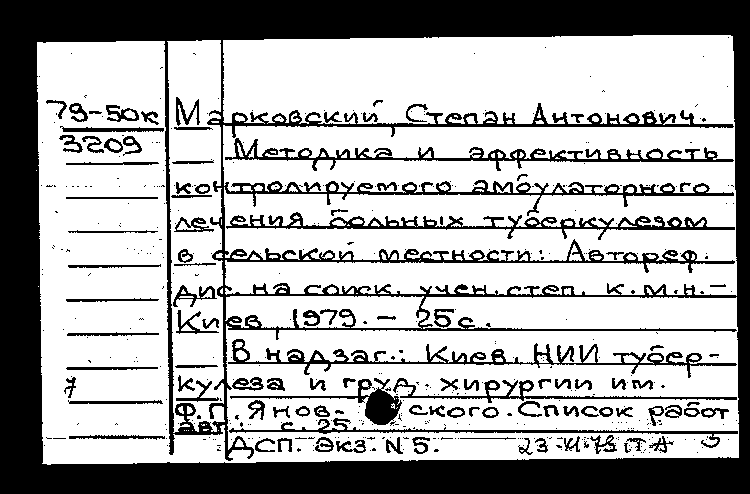 79-50к Марковский, Степан Антонович.
3209 Методика и эффективность
контролируемого амбулаторного
лечения больных туберкулезом
в сельской местности: Автореф.
дис. на соиск. учен. степ. к.м.н.-
Киев, 1979. - 25с.
В надзаг.: Киев. НИИ тубер-
7 кулеза и груд. хирургии им.
Ф.Г. Янов- ского. Список работ
авт.: с. 25.
ДСП. Экз. N 5.